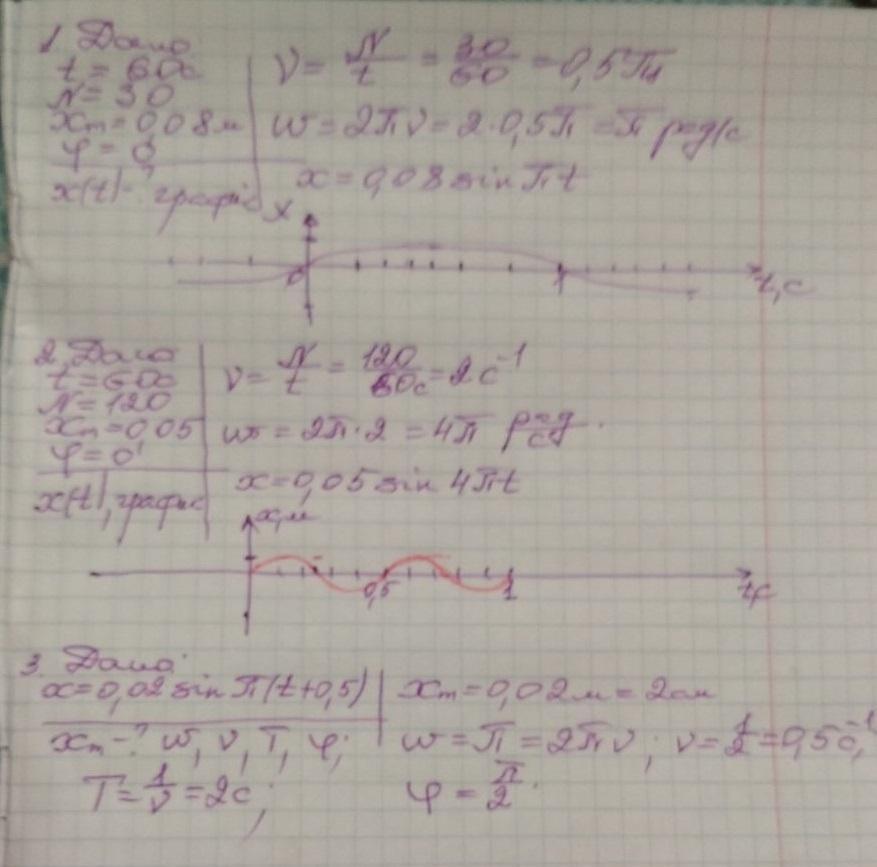 1 Дано
t = 60с
N = 30
xm = 0,08 м
φ = 0
x(t) - ? графік
ν = N/t = 30/60 = 0,5 Гц
ω = 2πν = 2·0,5π = π рад/с
x = 0,08 sin πt
x
0
1
t, с
2. Дано
t = 60с
N = 120
xm = 0,05
φ = 0
x(t), графік
ν = N/t = 120/60с = 2 с⁻¹
ω = 2π·2 = 4π рад/с.
x = 0,05 sin 4πt
x, м
0,5
1
t, с
3 Дано:
x = 0,02 sin π(t+0,5)
xm - ? ω, ν, T, φ;
xm = 0,02 м = 2 см
ω = π = 2πν; ν = 1/2 = 0,5 с⁻¹,
T = 1/ν = 2с;
φ = π/2.